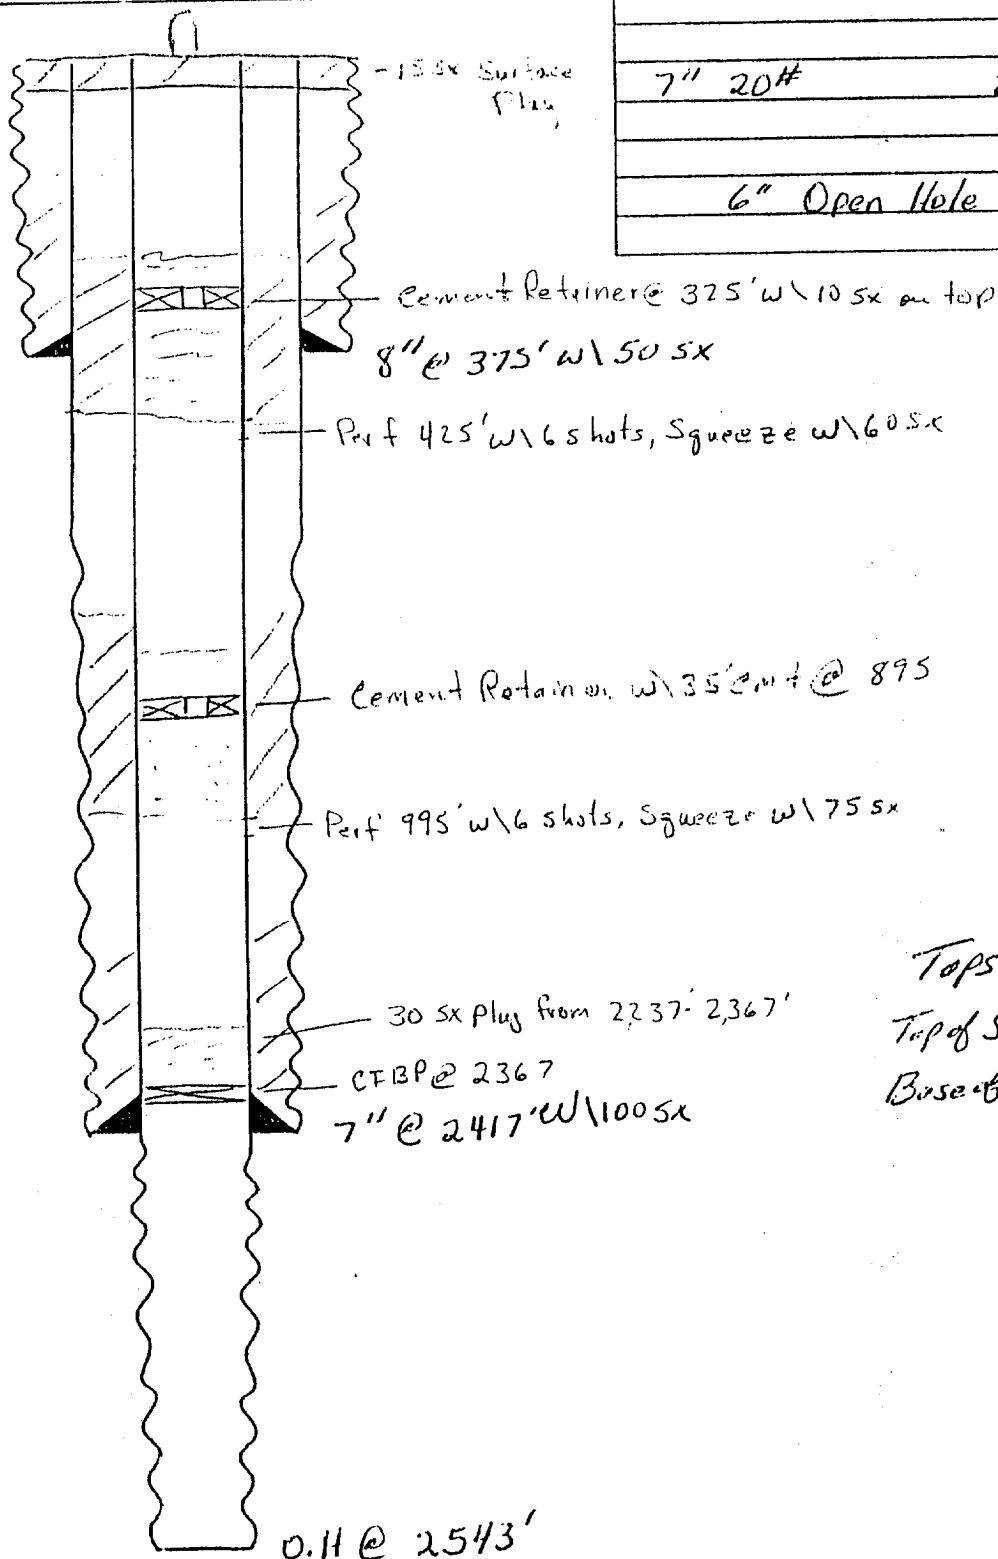 - 15 sx Surface
Plug
7" 20#
6" Open Hole
Cement Retainer @ 325' w\ 10 sx on top
8" @ 375' w\ 50 sx
Perf 425' w\ 6 shots, Squeeze w\ 60 sx
Cement Retainer w\ 35' cmt @ 895
Perf 995' w\ 6 shots, Squeeze w\ 75 sx
Tops
30 sx plug from 2237 - 2,367'
Top of
CIBP @ 2367
Base of
7" @ 2417' w\ 100 sx
O.H @ 2543'